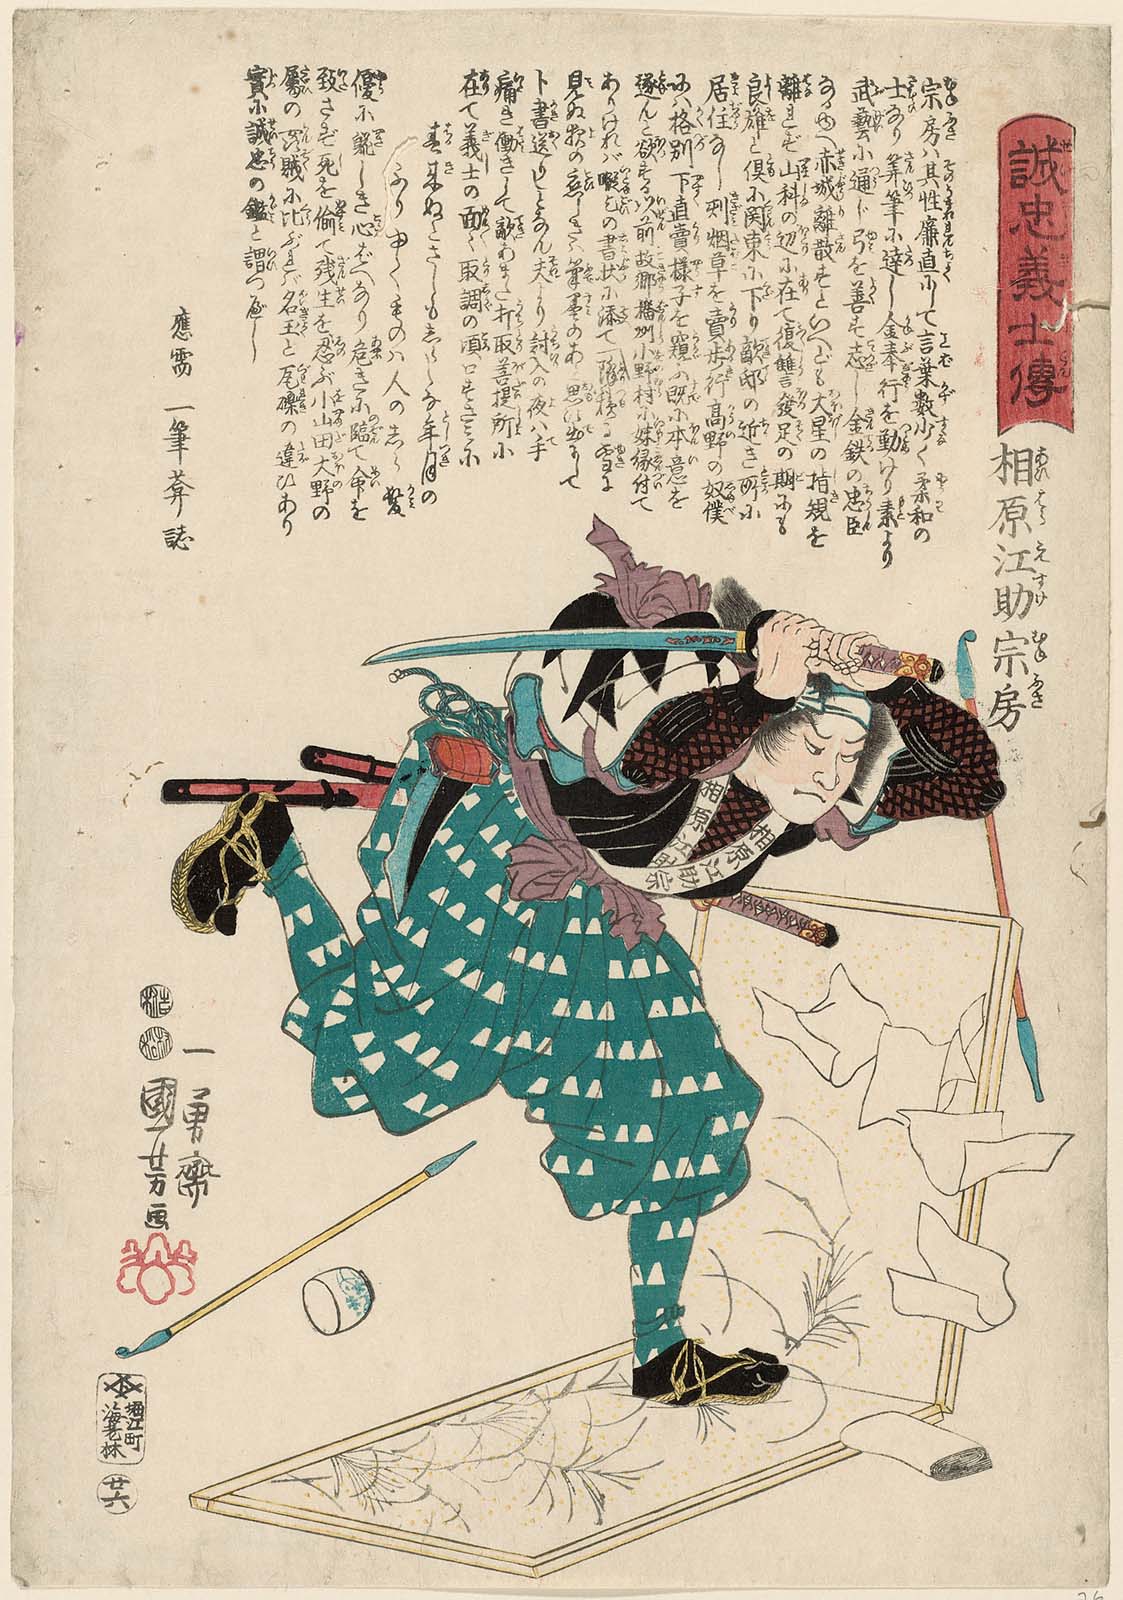 誠忠義士傳
相原江助宗房
宗房ハ其性廉直にして言葉数少く柔和の
士なり筭筆に達し金奉行を勤けり素より
武藝に通じ弓を善す志し金鉄の忠臣
なるゆへ赤城離散すといへども大星の指規を
離れず山科の辺に在て復讐発足の期にも
良雄と倶に関東に下り敵邸の近き所に
居住なし則烟草を賣歩行高野の奴僕
にハ格別下直賣様子を窺ハ既に本意を
遂んと欲する以前故郷播州小野村に妹縁付て
ありければ
見ぬ
ト書送りしとなん夫より討入の夜ハ手
痛き働きして敵あまた打取菩提所に
在て義士の面〻取調の頃口ずさミに
春来ぬとさしもしらるゝ年月の
ふり申く ものハ人の しら髪
優に艶しき心ばへなり危きに臨て命を
致さず死を偷て残生を忍ぶ小山田大野の
属の 賊に比ぶれば名玉と瓦礫の違ひあり
實に誠忠の鑑と謂つべし
應需 一筆葊誌
相原江助宗
相原江助宗
一勇齋
國芳画
堀江町
海老林
廿六